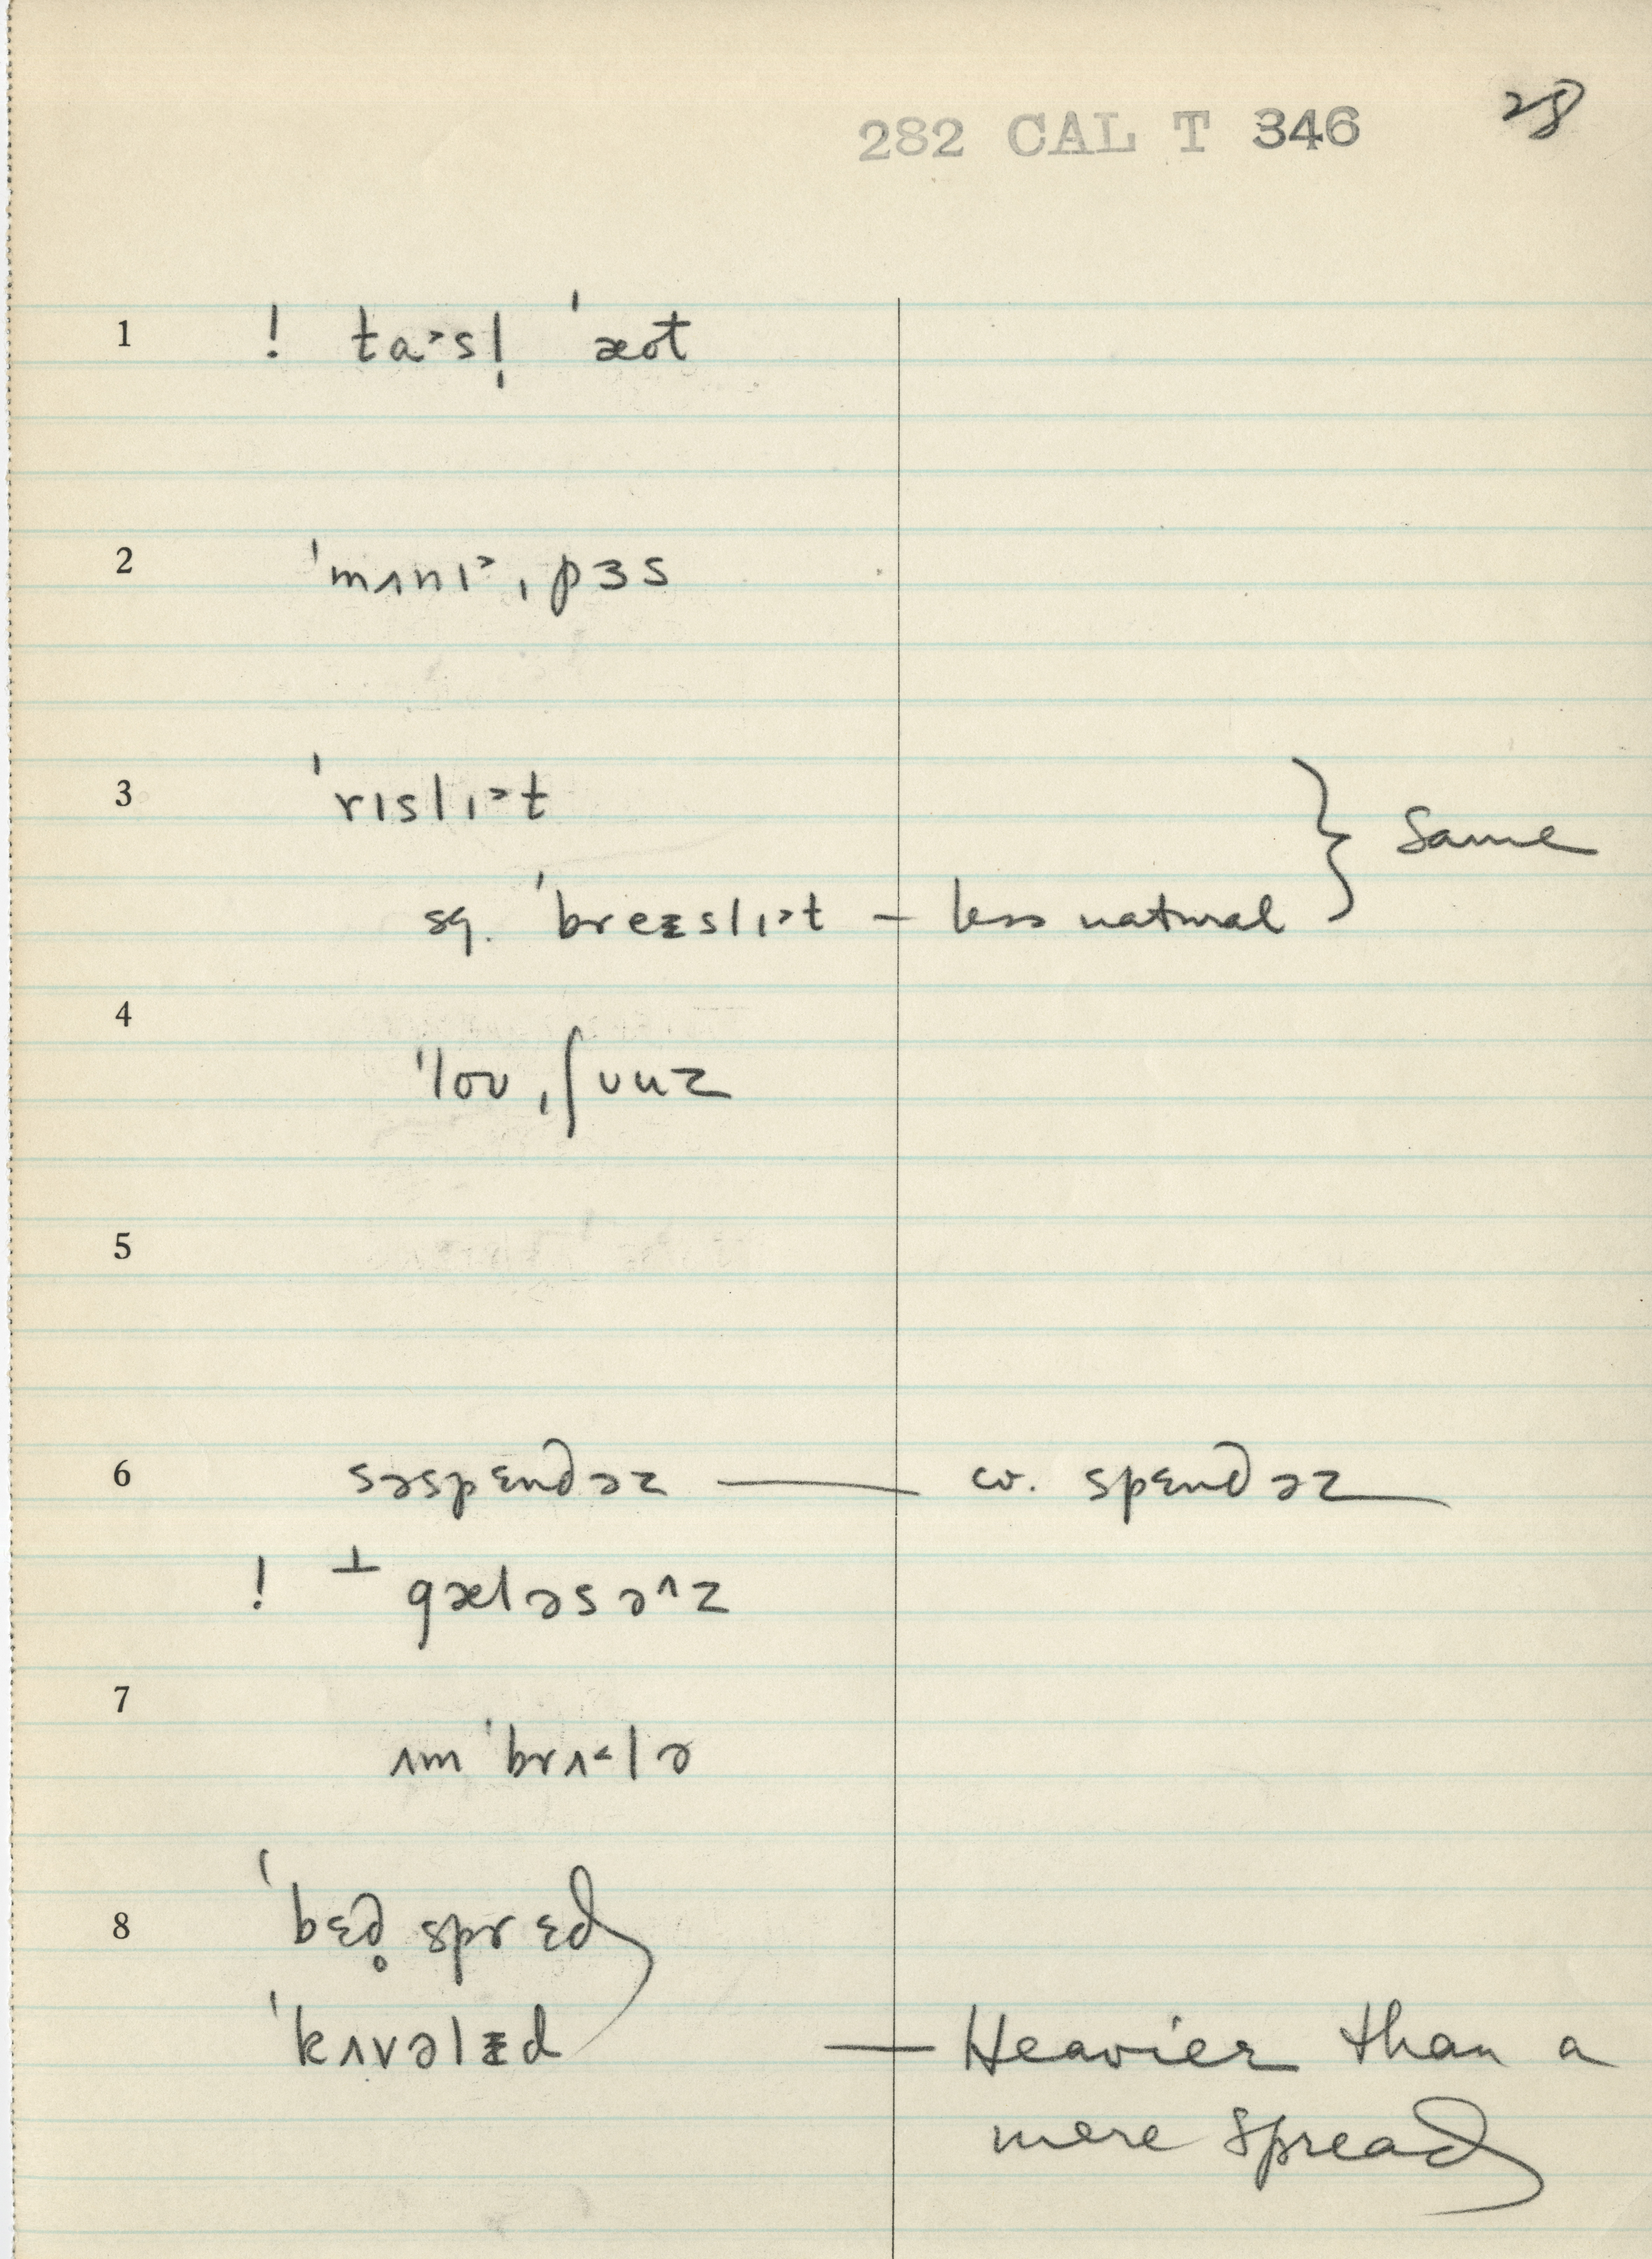 282 CAL T 346 28
1 ! ta˃sl̩ ˈæot
2 ˈmʌnɪ˃ˌpɜs
3 ˈrɪslɪ˃t } Same
sq. ˈbreᵻslɪ˃t — less natural
4 ˈloʊˌʃʊuz
5
6 səspɛndəz — cv. spɛndəz
! ⊥ gæləsə^z
7 ʌmˈbrʌ˂lə
8 ˈbɛd̥sprɛd
ˈkʌvəlᵻd — Heavier than a
mere spread